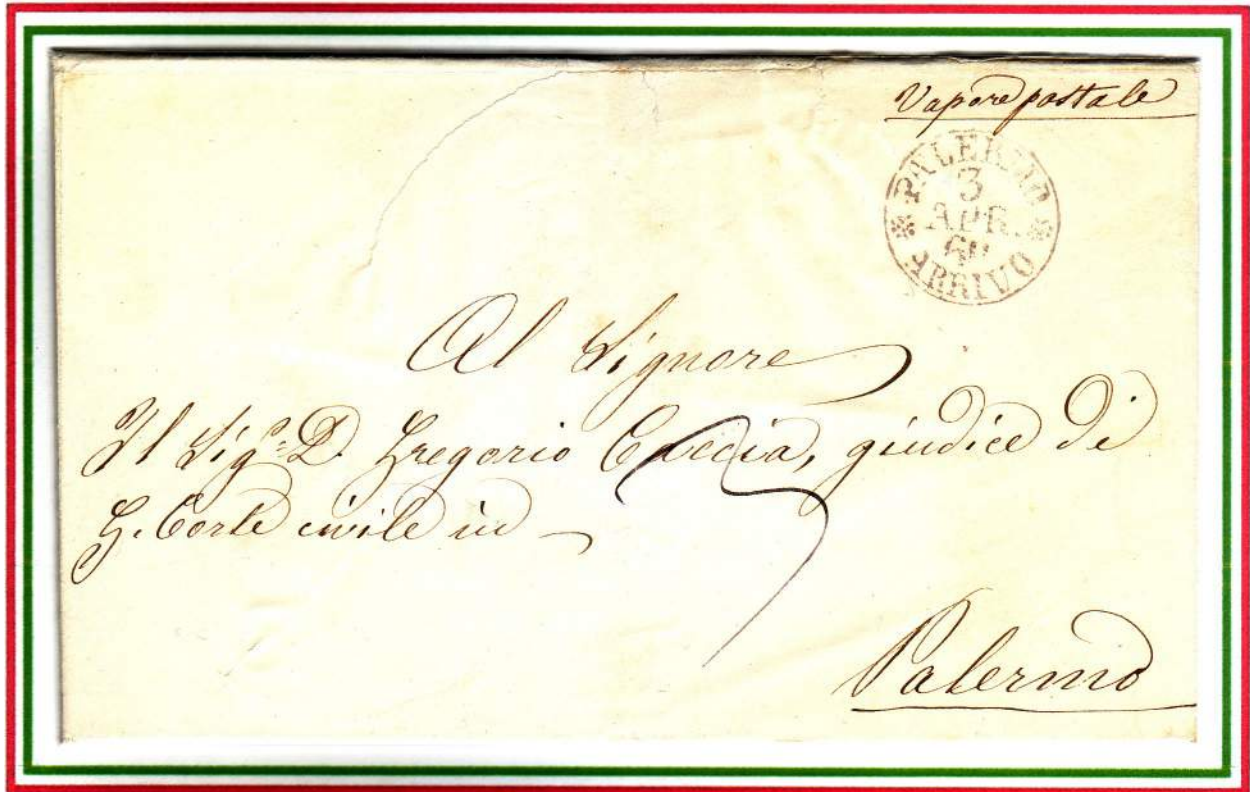 Vapore postale
PALERMO
3
APR.
60
ARRIVO
Al Signore
Il Sig.r D. Gregorio Caccia, giudice di
G. Corte civile in
Palermo